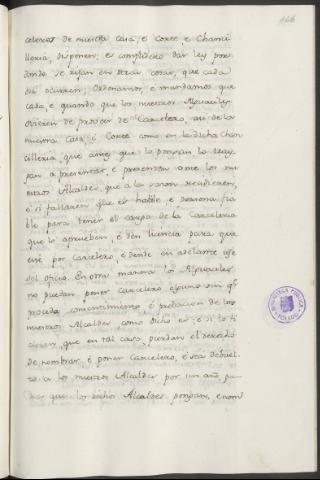 146
celeros de nuestra Casa, e Corte e Chanci
lleria, disponer, e complidero dar ley por
donde se rijan en otras cosas, que cada
dia ocurren; Ordenamos, e mandamos que
cada, e quando que los nuestros Alguaciles
ovieren de proveer de Carcelero, asi de la
nuestra Casa, e Corte como en la dicha Chan
cilleria, que antes que lo pongan lo
a presentar, e presenten ante los nu
estros Alcaldes, que a la sazon residieren,
e si fallaren que es habile, e persona
ble para tener el cargo de la Carceleria
que lo aprueben, e den licencia para que
esté por Carcelero, e dende en adelante use
del oficio. En otra manera los Alguaciles
no puedan poner Carcelero, e
preceda consentimiento, e presentacion de los
nuestros Alcaldes como dicho es: e si lo fi
cieren, que en tal caso, pierdan el derecho
de nombrar, e poner Carcelero, e sea debuel
to a los nuestros Alcaldes por un año, pa
ra que los dichos Alcaldes pongan, e nom
BIBLIOTECA PUBLICA
TOLEDO